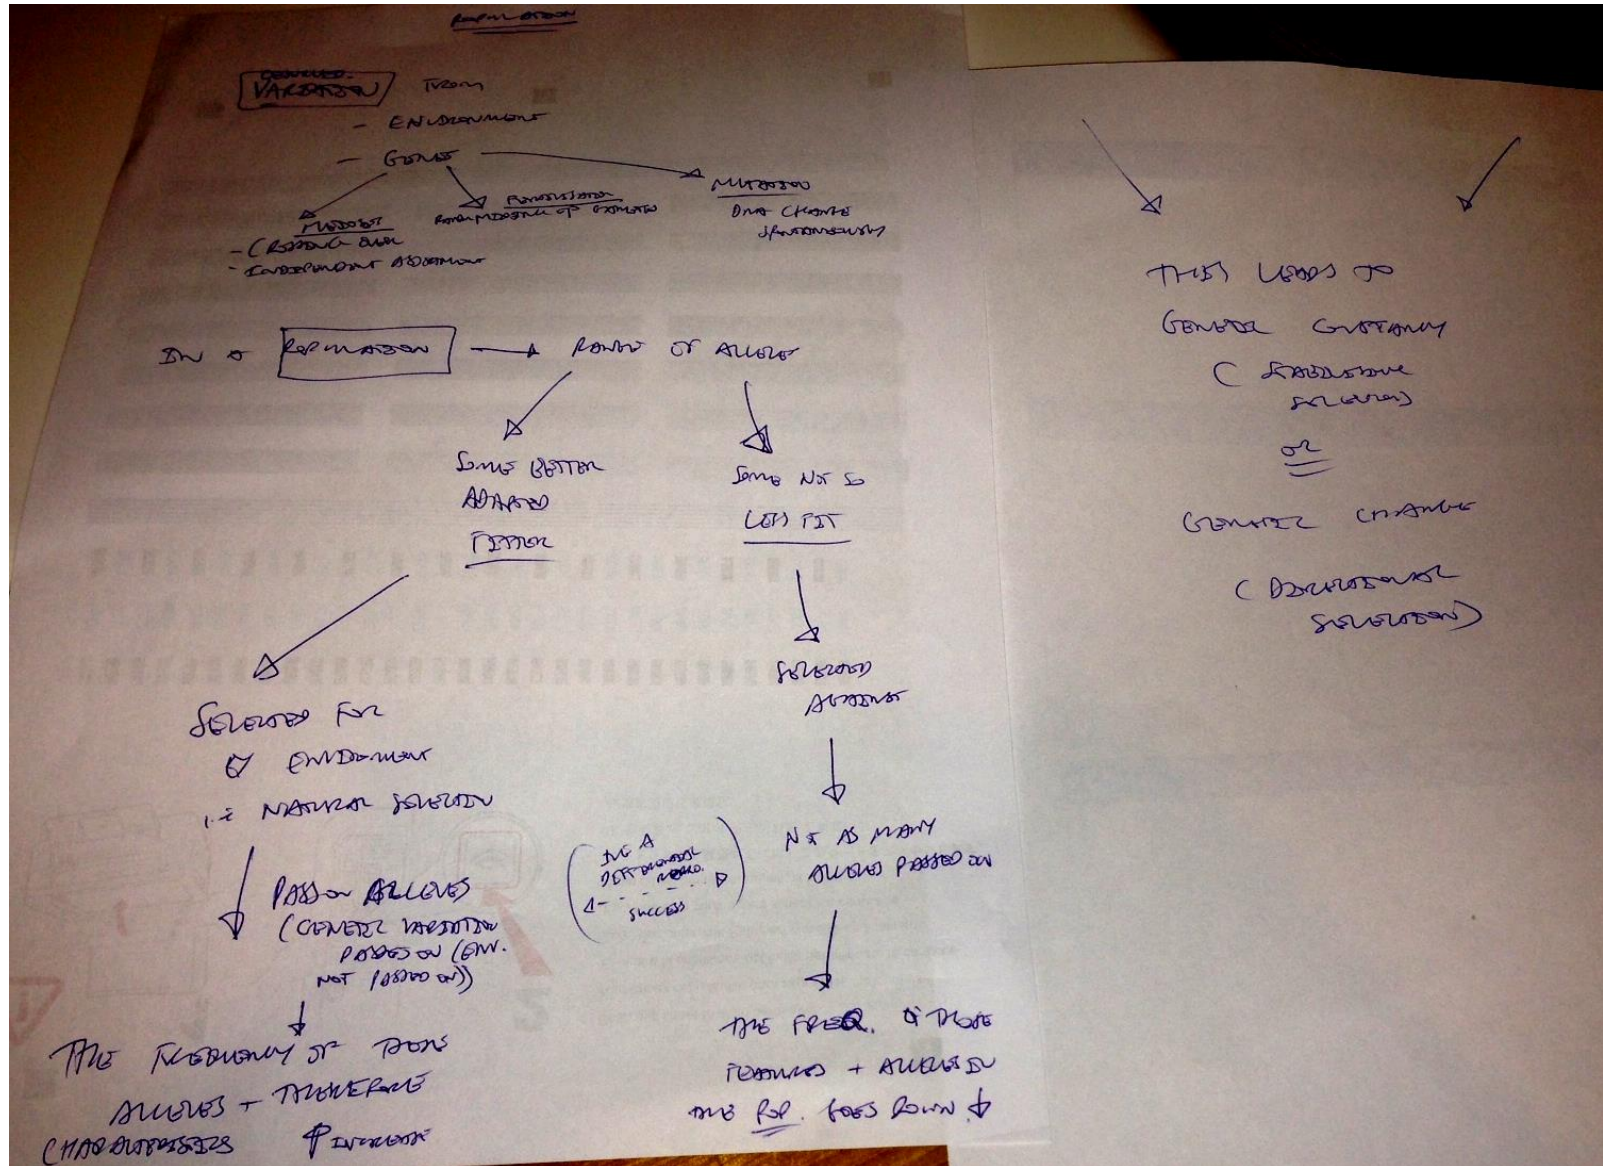 POPULATION
VARIATION FROM
- ENVIRONMENT
- GENES
MEIOSIS
- CROSSING OVER
- INDEPENDENT ASSORTMENT
FERTILISATION
RANDOM MIXING OF GAMETES
MUTATION
DNA CHANGE
SPONTANEOUSLY
IN A POPULATION → RANGE OF ALLELES
SOME BETTER
ADAPTED
FITTER
SOME NOT SO
LESS FIT
SELECTED FOR
BY ENVIRONMENT
i.e. NATURAL SELECTION
PASS ON ALLELES
(GENETIC VARIATION
PASSES ON (ENV.
NOT PASSED ON))
THE FREQUENCY OF THESE
ALLELES + THEREFORE
CHARACTERISTICS ↑ INCREASE
SELECTED
AGAINST
NOT AS MANY
ALLELES PASSED ON
(I.E. A
DIFFERENTIAL
REPRO.
SUCCESS)
THE FREQ. OF THOSE
FEATURES + ALLELES IN
THE POP. GOES DOWN ↓
THIS LEADS TO
GENETIC CONSTANCY
( STABILISING
SELECTION)
OR
GENETIC CHANGE
( DIRECTIONAL
SELECTION)